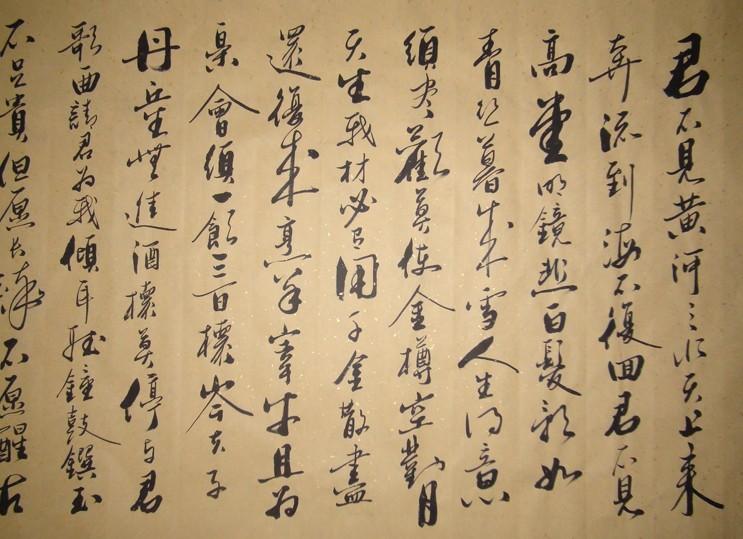 君不見黄河之水天上来
奔流到海不復回君不見
高堂明鏡悲白髮朝如
青丝暮成雪人生得意
須尽歡莫使金樽空對月
天生我材必有用千金散盡
還復来烹羊宰牛且为
樂會須一飲三百杯岑夫子
丹丘生将進酒杯莫停与君
歌一曲請君为我傾耳聽鐘鼓饌玉
不足貴但愿长醉不愿醒古